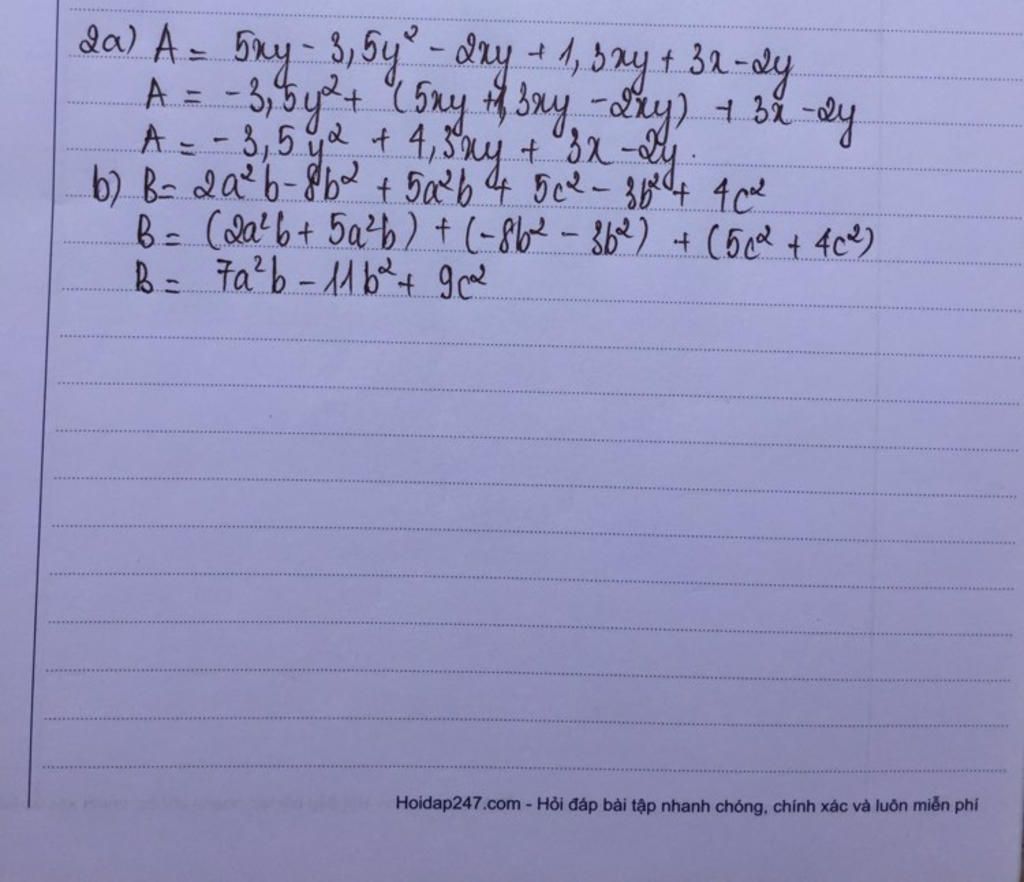 2a) A = 5xy - 3,5y² - 2xy + 1,3xy + 3x - 2y
A = -3,5y² + (5xy + 1,3xy - 2xy) + 3x - 2y
A = -3,5y² + 4,3xy + 3x - 2y.
b) B = 2a²b - 8b² + 5a²b + 5c² - 3b² + 4c²
B = (2a²b + 5a²b) + (-8b² - 3b²) + (5c² + 4c²)
B = 7a²b - 11b² + 9c²
Hoidap247.com - Hỏi đáp bài tập nhanh chóng, chính xác và luôn miễn phí